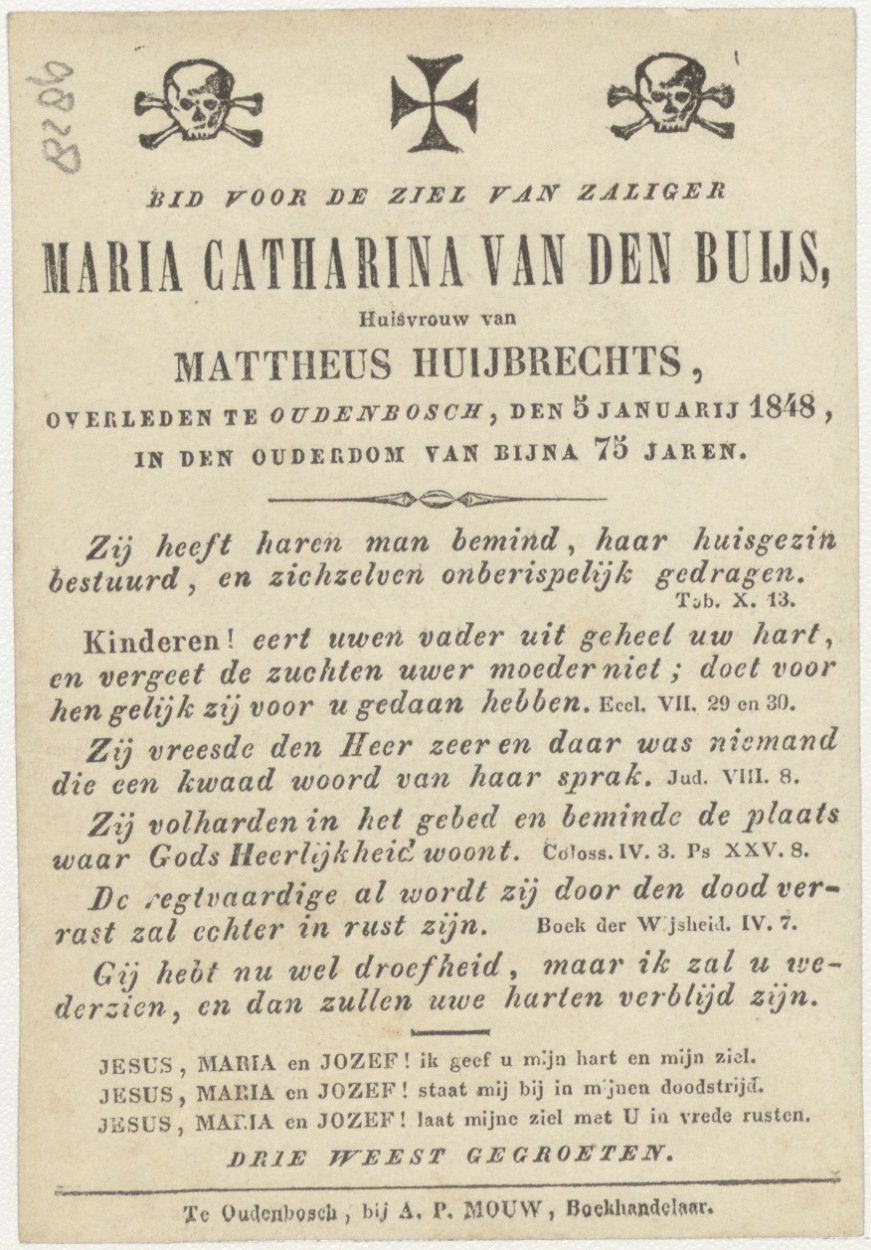 BID VOOR DE ZIEL VAN ZALIGER
MARIA CATHARINA VAN DEN BUIJS,
Huisvrouw van
MATTHEUS HUIJBRECHTS,
OVERLEDEN TE OUDENBOSCH, DEN 5 JANUARIJ 1848,
IN DEN OUDERDOM VAN BIJNA 75 JAREN.
Zij heeft haren man bemind, haar huisgezin
bestuurd, en zichzelven onberispelijk gedragen.
Tob. X. 13.
Kinderen! eert uwen vader uit geheel uw hart,
en vergeet de zuchten uwer moeder niet; doet voor
hen gelijk zij voor u gedaan hebben. Eccl. VII. 29 en 30.
Zij vreesde den Heer zeer en daar was niemand
die een kwaad woord van haar sprak. Jud. VIII. 8.
Zij volharden in het gebed en beminde de plaats
waar Gods Heerlijkheid woont. Coloss. IV. 3. Ps XXV. 8.
De regtvaardige al wordt zij door den dood ver-
rast zal echter in rust zijn. Boek der Wijsheid. IV. 7.
Gij hebt nu wel droefheid, maar ik zal u we-
derzien, en dan zullen uwe harten verblijd zijn.
JESUS, MARIA en JOZEF! ik geef u mijn hart en mijn ziel.
JESUS, MARIA en JOZEF! staat mij bij in mijnen doodstrijd.
JESUS, MARIA en JOZEF! laat mijne ziel met U in vrede rusten.
DRIE WEEST GEGROETEN.
Te Oudenbosch, bij A. P. MOUW, Boekhandelaar.